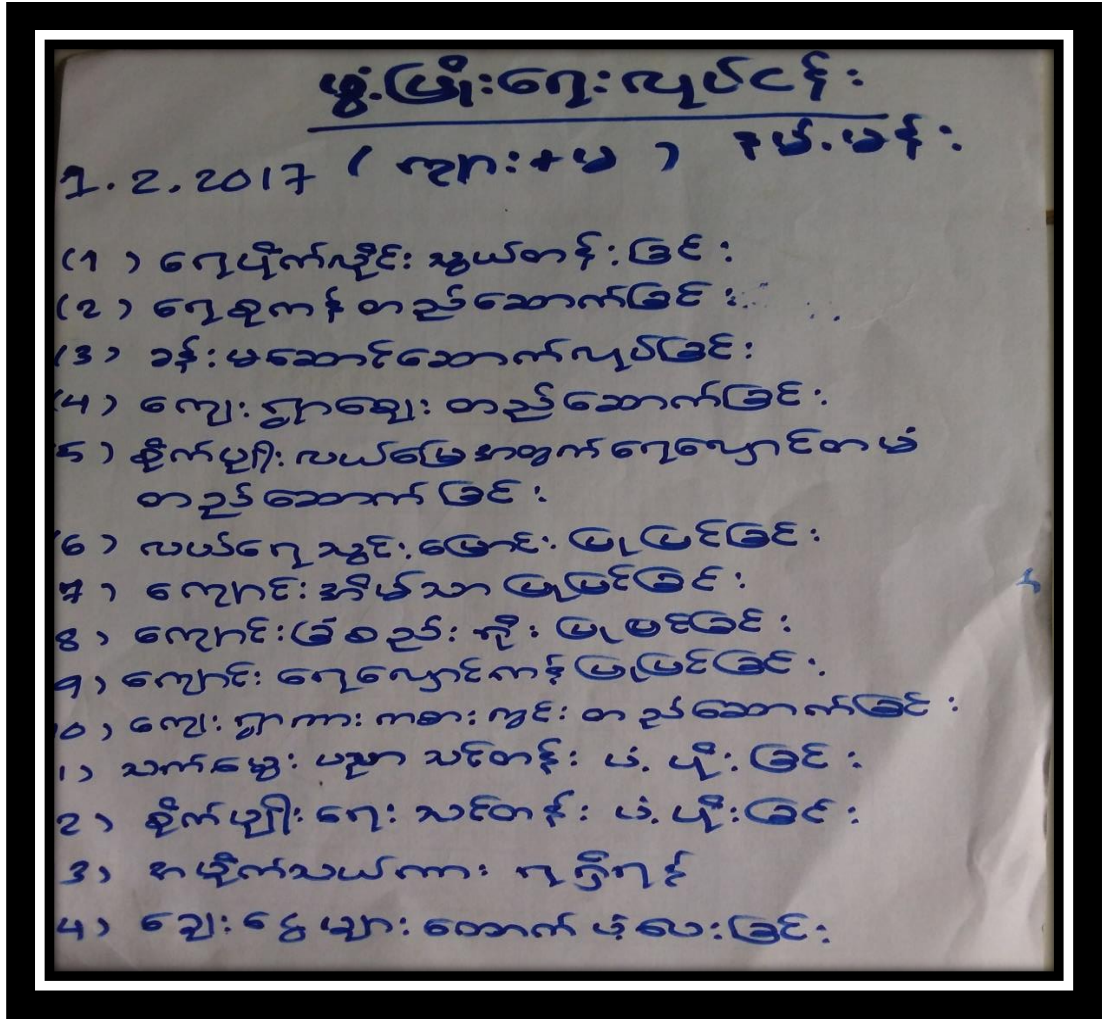 ဖွံ့ဖြိုးရေးလုပ်ငန်း
1.2.2017 (ကျား+မ) နယ်မန်း
(1) ရေပိုက်လိုင်းသွယ်တန်းခြင်း
(2) ရေစုကန်တည်ဆောက်ခြင်း
(3) ခန်းမဆောင်ဆောက်လုပ်ခြင်း
(4) ကျေးရွာချေးတည်ဆောက်ခြင်း
5) စိုက်ပျိုးလယ်မြေအတွက်ရေလှောင်တမံ
တည်ဆောက်ခြင်း
(6) လယ်ရေသွင်းမြောင်းပြုပြင်ခြင်း
7) ကျောင်းအိမ်သာပြုပြင်ခြင်း
8) ကျောင်းခြံစည်းရိုးပြုပြင်ခြင်း
9) ကျောင်းရေလှောင်ကန်ပြုပြင်ခြင်း
10) ကျေးရွာကားကစားကွင်းတည်ဆောက်ခြင်း
1) သက်မွေးပညာသင်တန်းပံ့ပိုးခြင်း
2) စိုက်ပျိုးရေးသင်တန်းပံ့ပိုးခြင်း
3) အမှိုက်သယ်ကား
4) ချေးငွေများထောက်ပံ့ပေးခြင်း